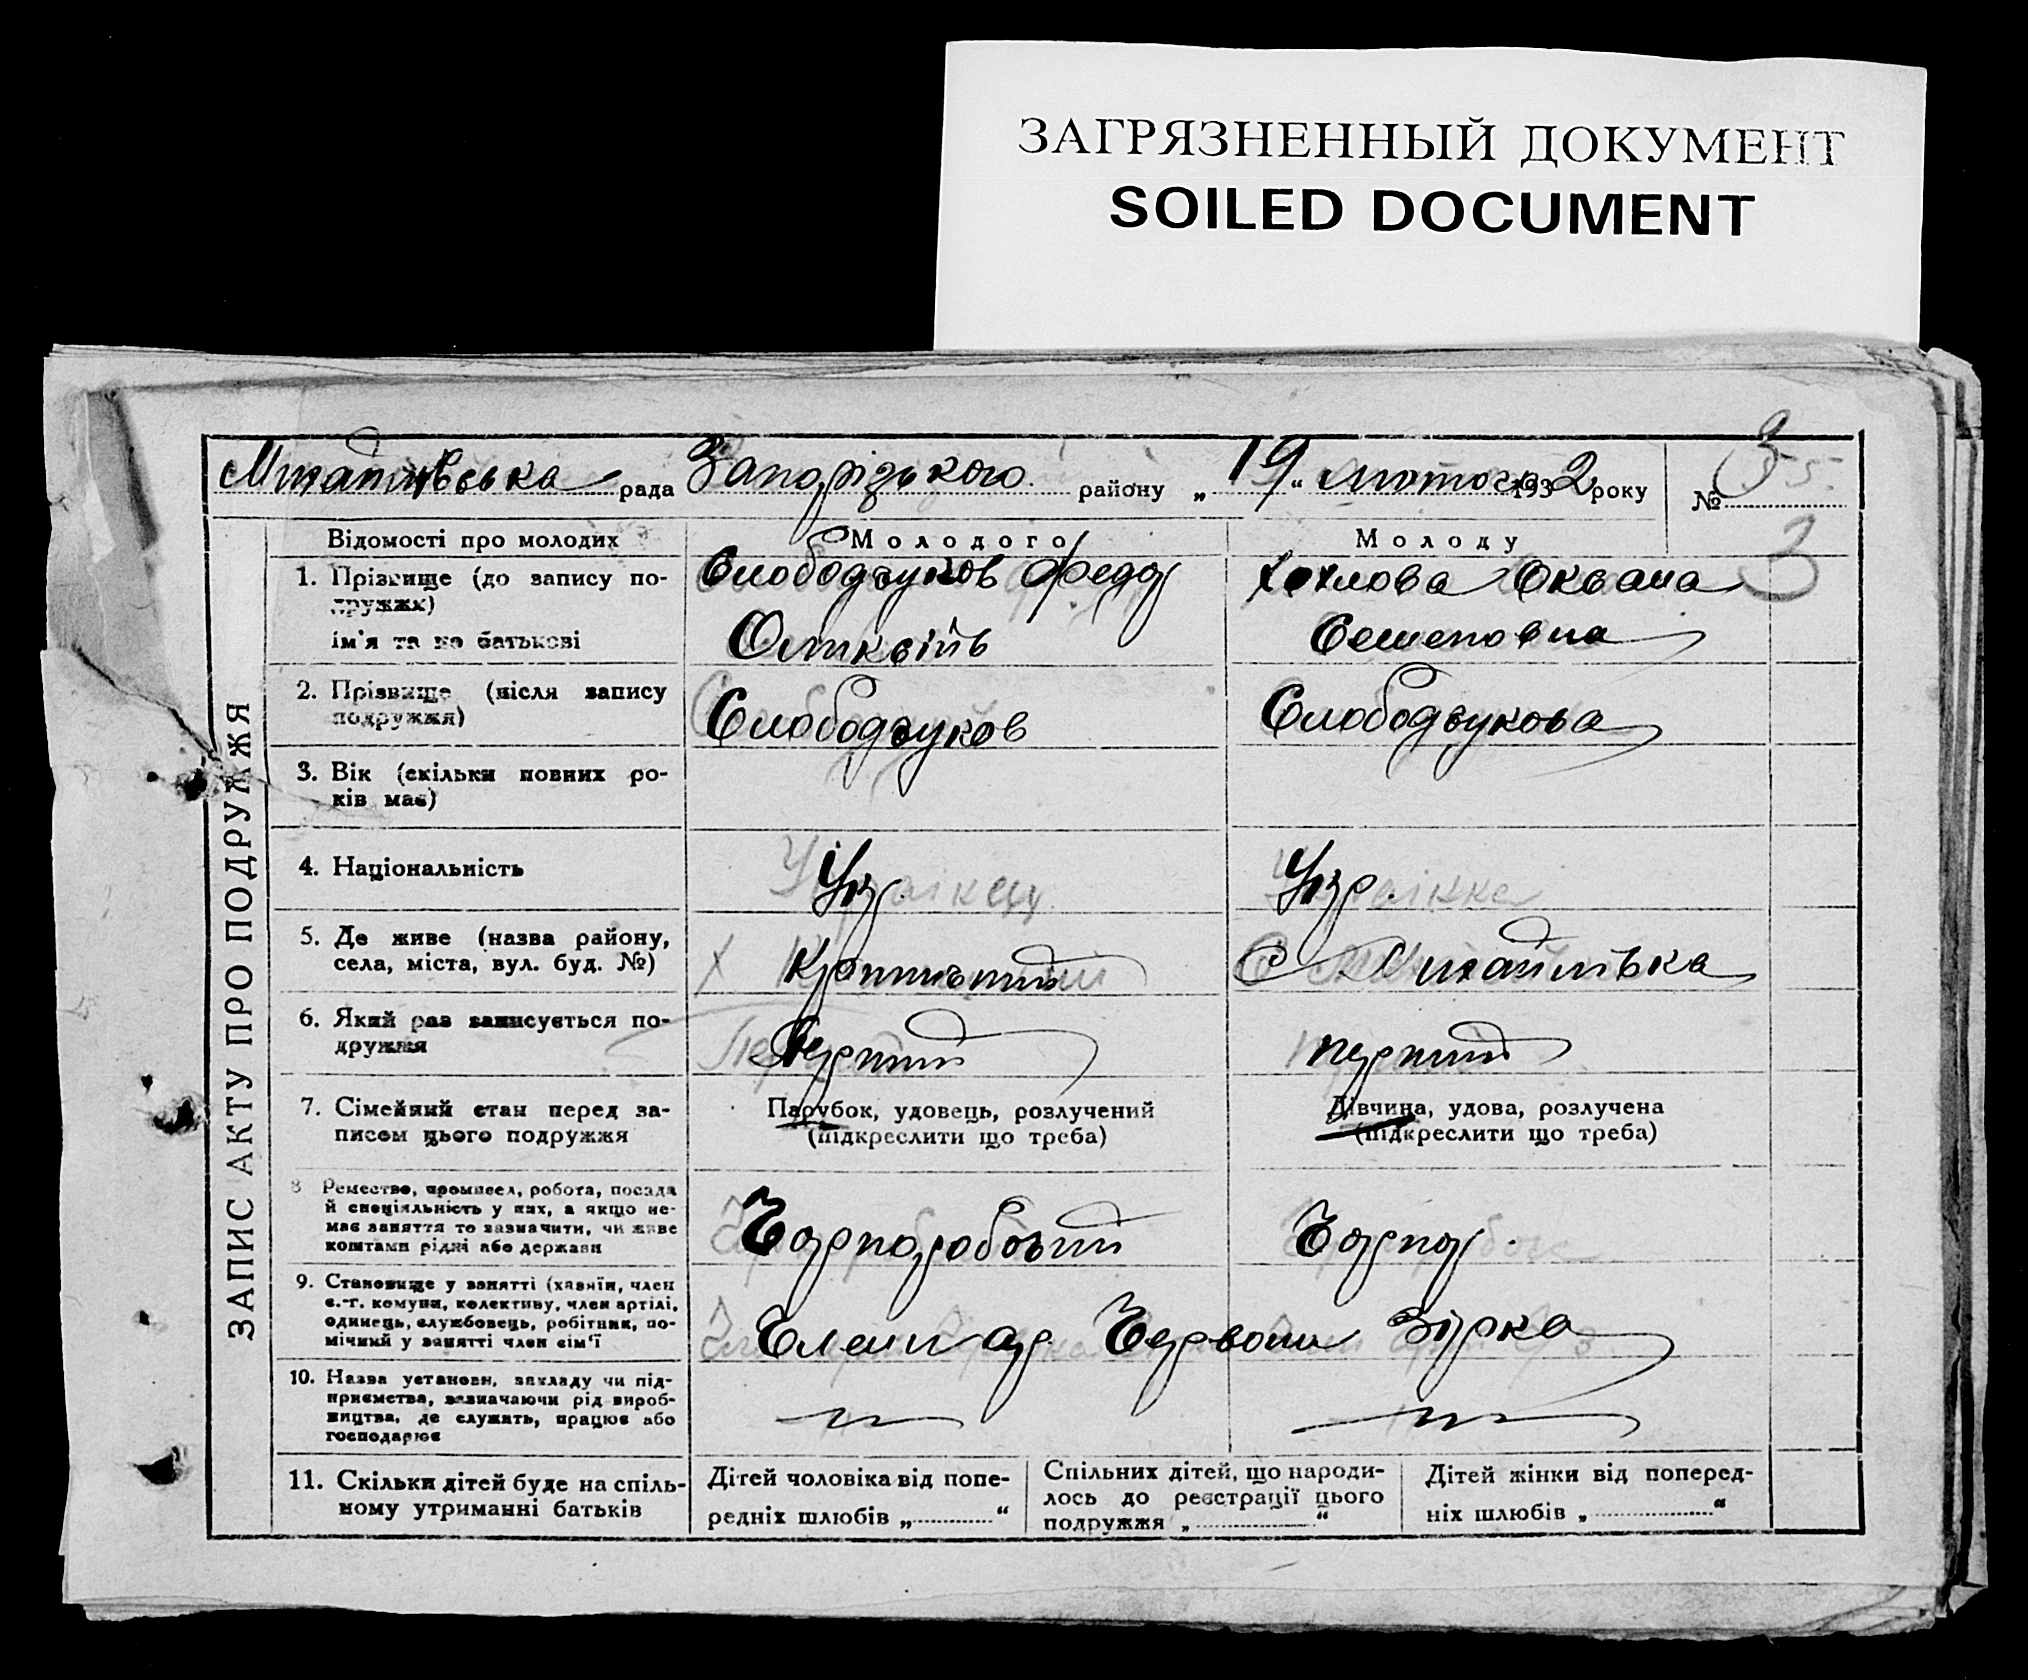 ЗАГРЯЗНЕННЫЙ ДОКУМЕНТ
SOILED DOCUMENT
Михайлівська рада Запорізького району „ 19 “ лютого 1932 року № 3
3
ЗАПИС АКТУ ПРО ПОДРУЖЖЯ
Відомості про молодих
Молодого
Молоду
1. Прізвище (до запису по-
дружжя)
ім'я та по батькові
Слободзуков Федор
Хохлова Оксана
Семеновна
2. Прізвище (після запису
подружжя)
Слободзуков
Слободзукова
3. Вік (скільки повних ро-
ків має)
4. Національність
Укр.
Укр.
5. Де живе (назва району,
села, міста, вул. буд. №)
с Михайлівка
6. Який раз записується по-
дружжя
Перший
перший
7. Сімейний стан перед за-
писом цього подружжя
Парубок, удовець, розлучений
(підкреслити що треба)
Дівчина, удова, розлучена
(підкреслити що треба)
8 Ремество, промисел, робота, посада
й спеціяльність у них, а якщо не-
має заняття то зазначити, чи живе
коштами рідні або держави
Чорноробочий
Чорнор.
9. Становище у занятті (хазяїн, член
с.-г. комуни, колективу, член артілі,
одинець, службовець, робітник, по-
мічний у занятті член сім'ї
Член ар. Червона Зірка
10. Назва установи, закладу чи під-
приємства, зазначаючи рід вироб-
ництва, де служить, працює або
господарює
— „ —
— „ —
11. Скільки дітей буде на спіль-
ному утриманні батьків
Дітей чоловіка від попе-
редніх шлюбів „ “
Спільних дітей, що народи-
лось до реєстрації цього
подружжя „ “
Дітей жінки від поперед-
ніх шлюбів „ “